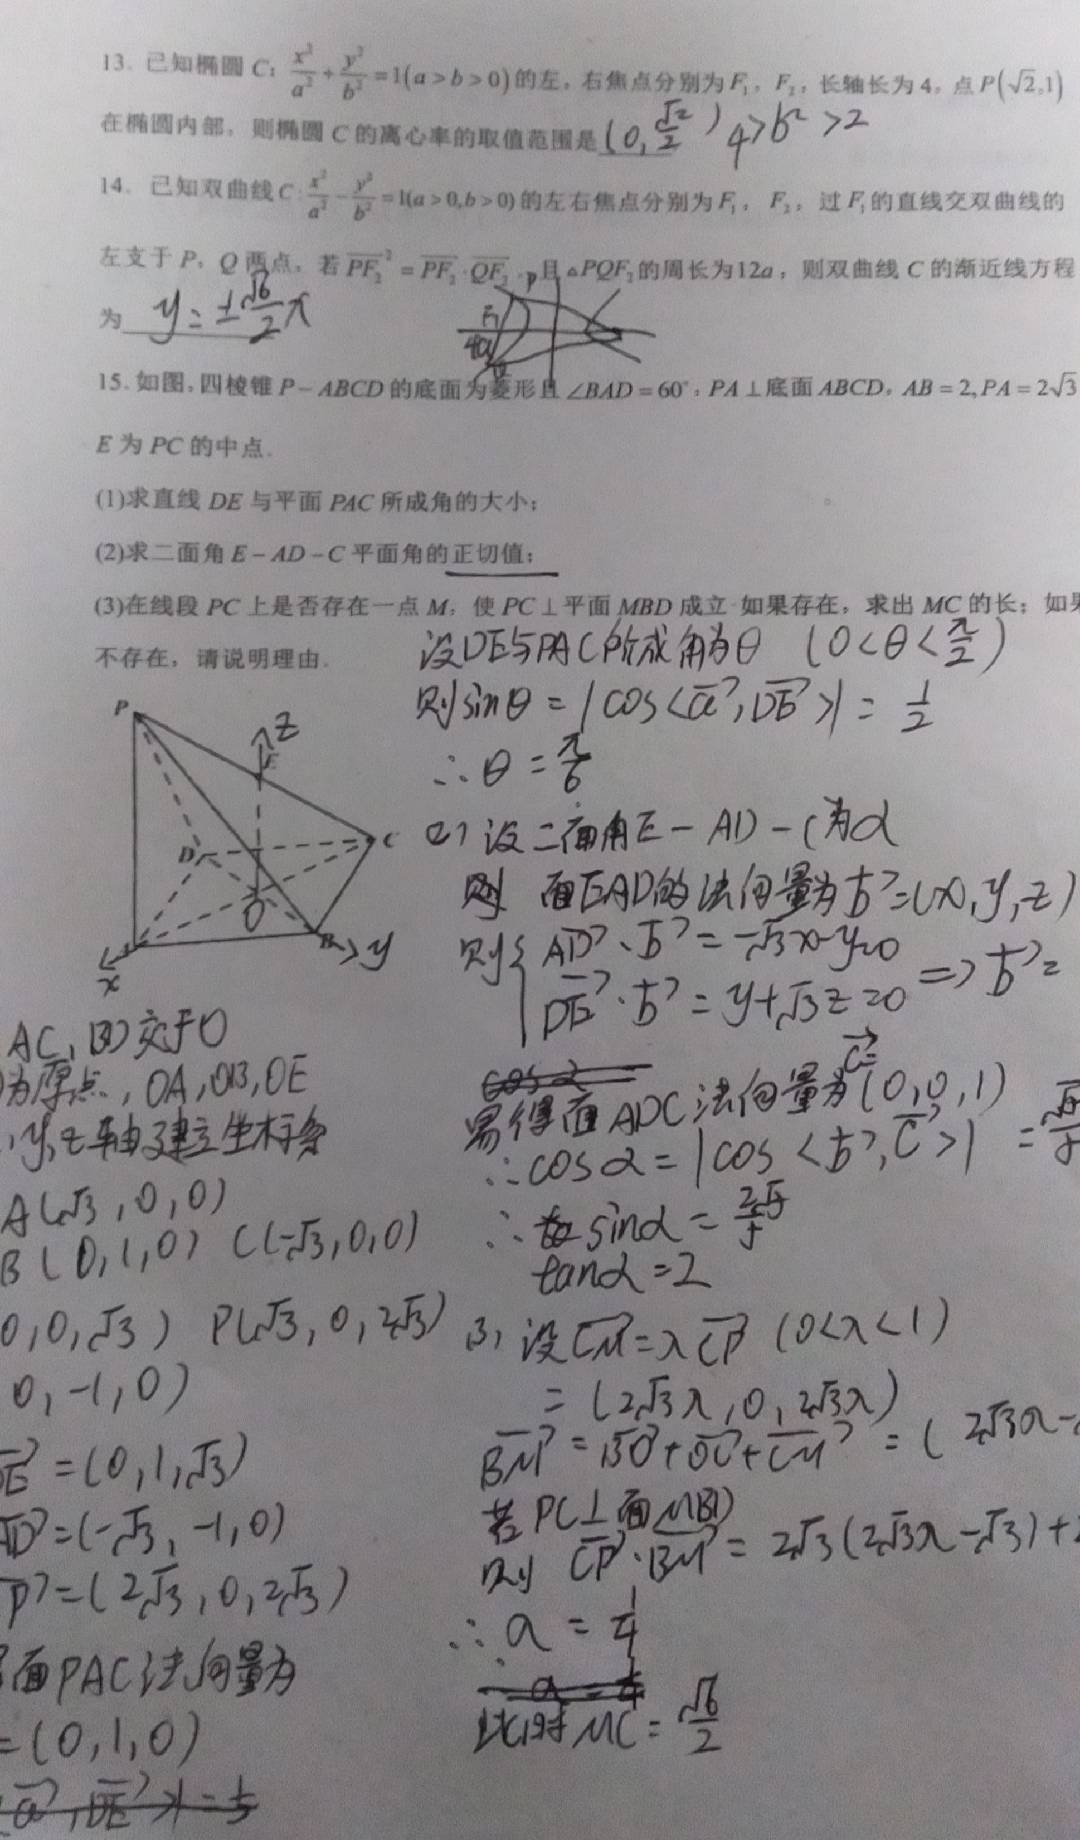 13. 已知椭圆 C: x²/a² + y²/b² = 1(a > b > 0) 的左, 右焦点分别为 F₁, F₂, 长轴长为 4, 点 P(√2,1)
在椭圆内部, 则椭圆 C 的离心率的取值范围是 (0, √2/2) 4>b²>2
14. 已知双曲线 C: x²/a² - y²/b² = 1(a > 0, b > 0) 的左右焦点分别为 F₁, F₂, 过 F₁ 的直线交双曲线的
左支于 P, Q 两点, 若 PF₂² = PF₂ · QF₂, 且 △PQF₂ 的周长为12a, 则双曲线 C 的渐近线方程
为 y = ±√6/2 x
P
F₁
4a
Q
15. 如图, 四棱锥 P-ABCD 的底面为菱形且 ∠BAD = 60°, PA ⊥ 底面 ABCD, AB = 2, PA = 2√3
E 为 PC 的中点.
(1)求直线 DE 与平面 PAC 所成角的大小;
(2)求二面角 E-AD-C 平面角的正切值;
(3)在线段 PC 上是否存在一点 M, 使 PC ⊥ 平面 MBD 成立 如果存在, 求出 MC 的长; 如果
不存在, 请说明理由.
P
z
E
D
C
O
B
y
x
AC, BD 交于O
为原点, OA, OB, OE
, y, z 轴建立坐标系
A(√3, 0, 0)
B(0, 1, 0) C(-√3, 0, 0)
0, 0, √3) P(√3, 0, 2√3)
0, -1, 0)
E = (0, 1, √3)
AD = (-√3, -1, 0)
P = (2√3, 0, 2√3)
面PAC法向量为
= (0, 1, 0)
设DE与PAC所成角为θ (0<θ<π/2)
则sinθ = |cos<a, DE>| = 1/2
∴ θ = π/6
(2) 设二面角E-AD-C为α
则 面EAD的法向量为b = (x, y, z)
则{ AD · b = -√3x - y = 0
DE · b = y + √3z = 0 => b =
易得面ADC法向量为c = (0, 0, 1)
∴ cosα = |cos<b, c>| = √5/5
∴ sinα = 2√5/5
tanα = 2
(3) 设CM = λCP (0<λ<1)
= (2√3λ, 0, 2√3λ)
BM = BO + OC + CM = (2√3λ -
若PC⊥面MBD
则 CP · BM = 2√3(2√3λ - √3) +
∴ λ = 1/4
此时 MC = √6/2